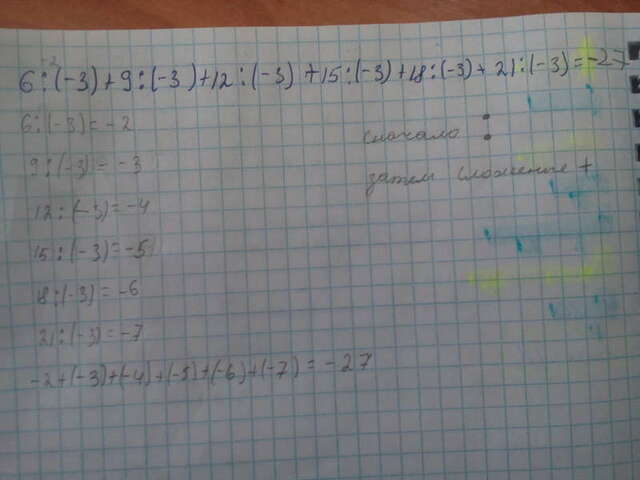 -2
6:(-3)+9:(-3)+12:(-3)+15:(-3)+18:(-3)+21:(-3)=-27
6:(-3)=-2
сначало :
9:(-3)=-3
затем сложение +
12:(-3)=-4
15:(-3)=-5
18:(-3)=-6
21:(-3)=-7
-2+(-3)+(-4)+(-5)+(-6)+(-7)=-27